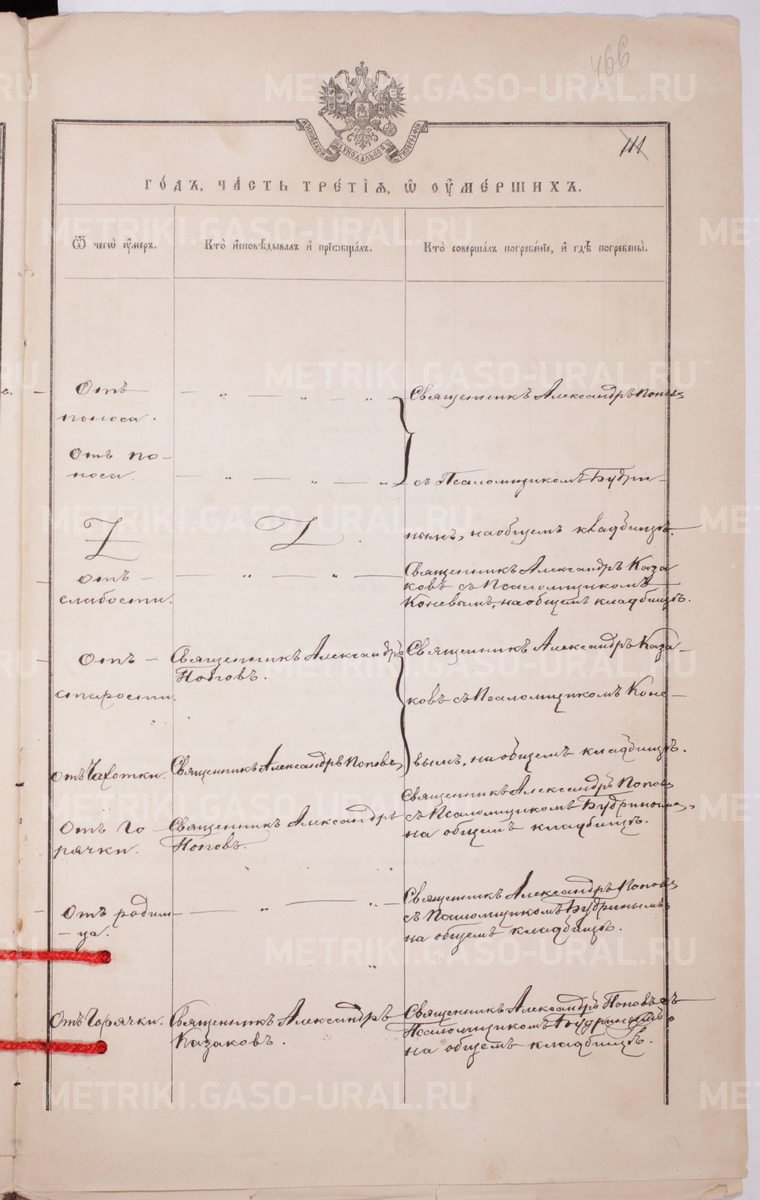 466
111
МОСКОВСКОЙ СѴНОДАЛЬНОЙ ТИПОГРАФІИ
ГО́ДЪ, ЧА́СТЬ ТРЕ́ТІѦ, Ѡ҆ ОУ҆МЕ́РШИХЪ.
Ѿ чегѡ̀ оу҆́меръ.
Кто̀ и҆сповѣ́дывалъ и҆ прїѡбща́лъ.
Кто̀ соверша́лъ погребе́нїе, и҆ гдѣ̀ погребены̀.
Отъ
поноса.
Священникъ Александръ Поповъ
Отъ по-
носа.
съ Псаломщикомъ Будри-
нымъ, на общемъ кладбищѣ.
отъ
слабости.
Священникъ Александръ Каза
ковъ съ Псаломщикомъ
Коневымъ, на общемъ кладбищѣ.
Отъ
старости.
Священникъ Александръ
Поповъ.
Священникъ Александръ Каза-
ковъ съ Псаломщикомъ Коне-
вымъ, на общемъ кладбищѣ.
отъ Чахотки.
Священникъ Александръ Поповъ
Отъ Го
рячки.
Священникъ Александръ
Поповъ.
Священникъ Александръ Поповъ
съ Псаломщикомъ Будринымъ,
на общемъ кладбищѣ.
Отъ родим-
-ца.
Священникъ Александръ Поповъ
съ Псаломщикомъ Будринымъ
на общемъ кладбищѣ.
Отъ Горячки.
Священникъ Александръ
Казаковъ.
Священникъ Александръ Поповъ съ
Псаломщикомъ Будринымъ
на общемъ кладбищѣ.
METRIKI.GASO-URAL.RU